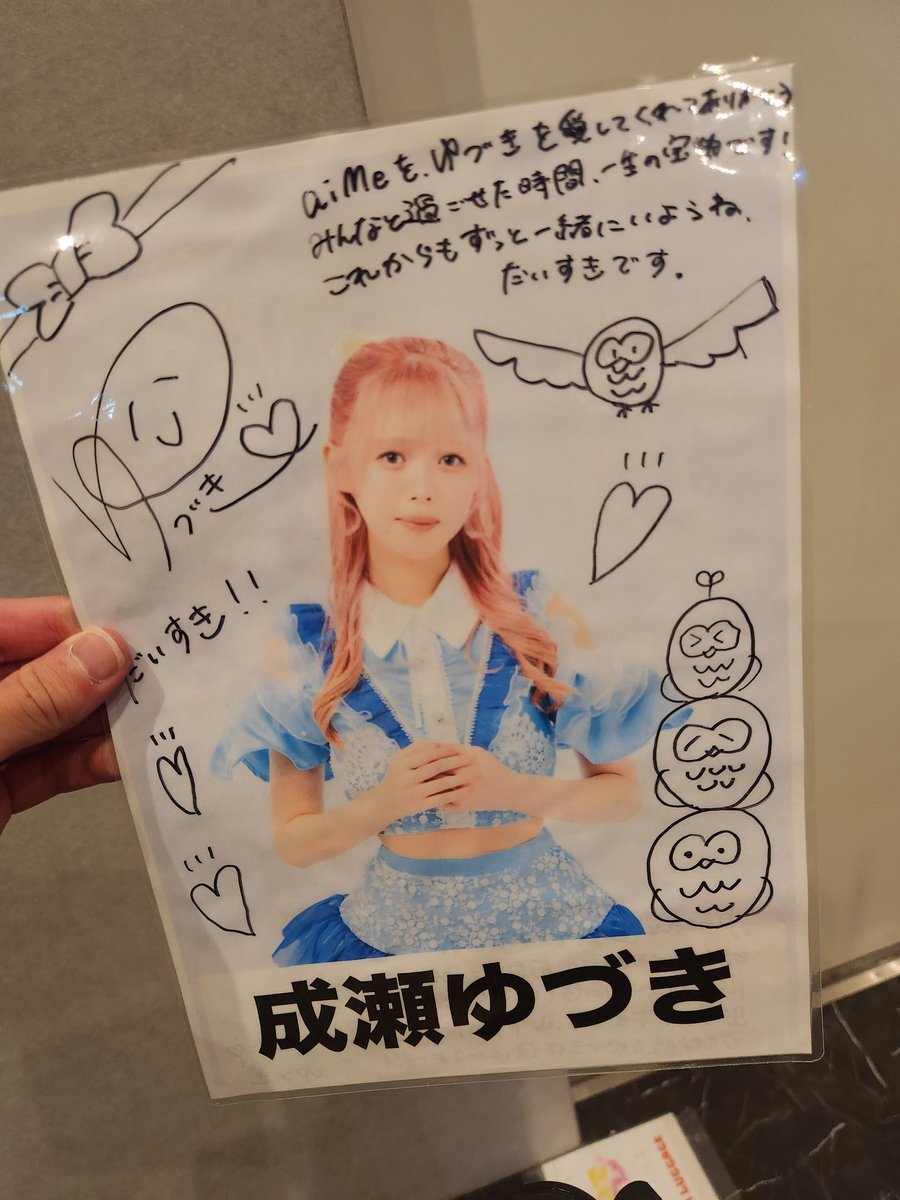 aiMeを、ゆづきを愛してくれてありがとう
みんなと過ごせた時間、一生の宝物です!
これからもずっと一緒にいようね、
だいすきです。
ゆ
づき
だいすき!!
成瀬ゆづき
LUGGAGE